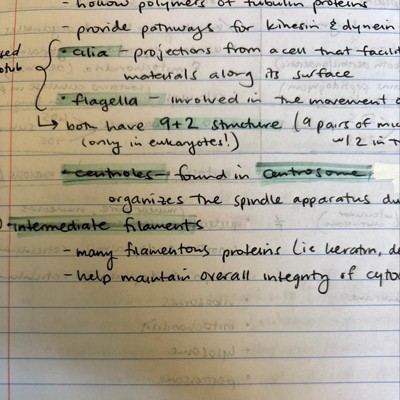 - hollow polymers of tubulin proteins
- provide pathways for kinesin & dynein
• cilia - projections from a cell that facilit
materials along its surface
• flagella - involved in the movement o
↳ both have 9+2 structure (9 pairs of mic
(only in eukaryotes!) w/ 2 in t
- centrioles - found in centrosome,
organizes the spindle apparatus du
) intermediate filaments
- many filamentous proteins (ie keratin, de
- help maintain overall integrity of cyto